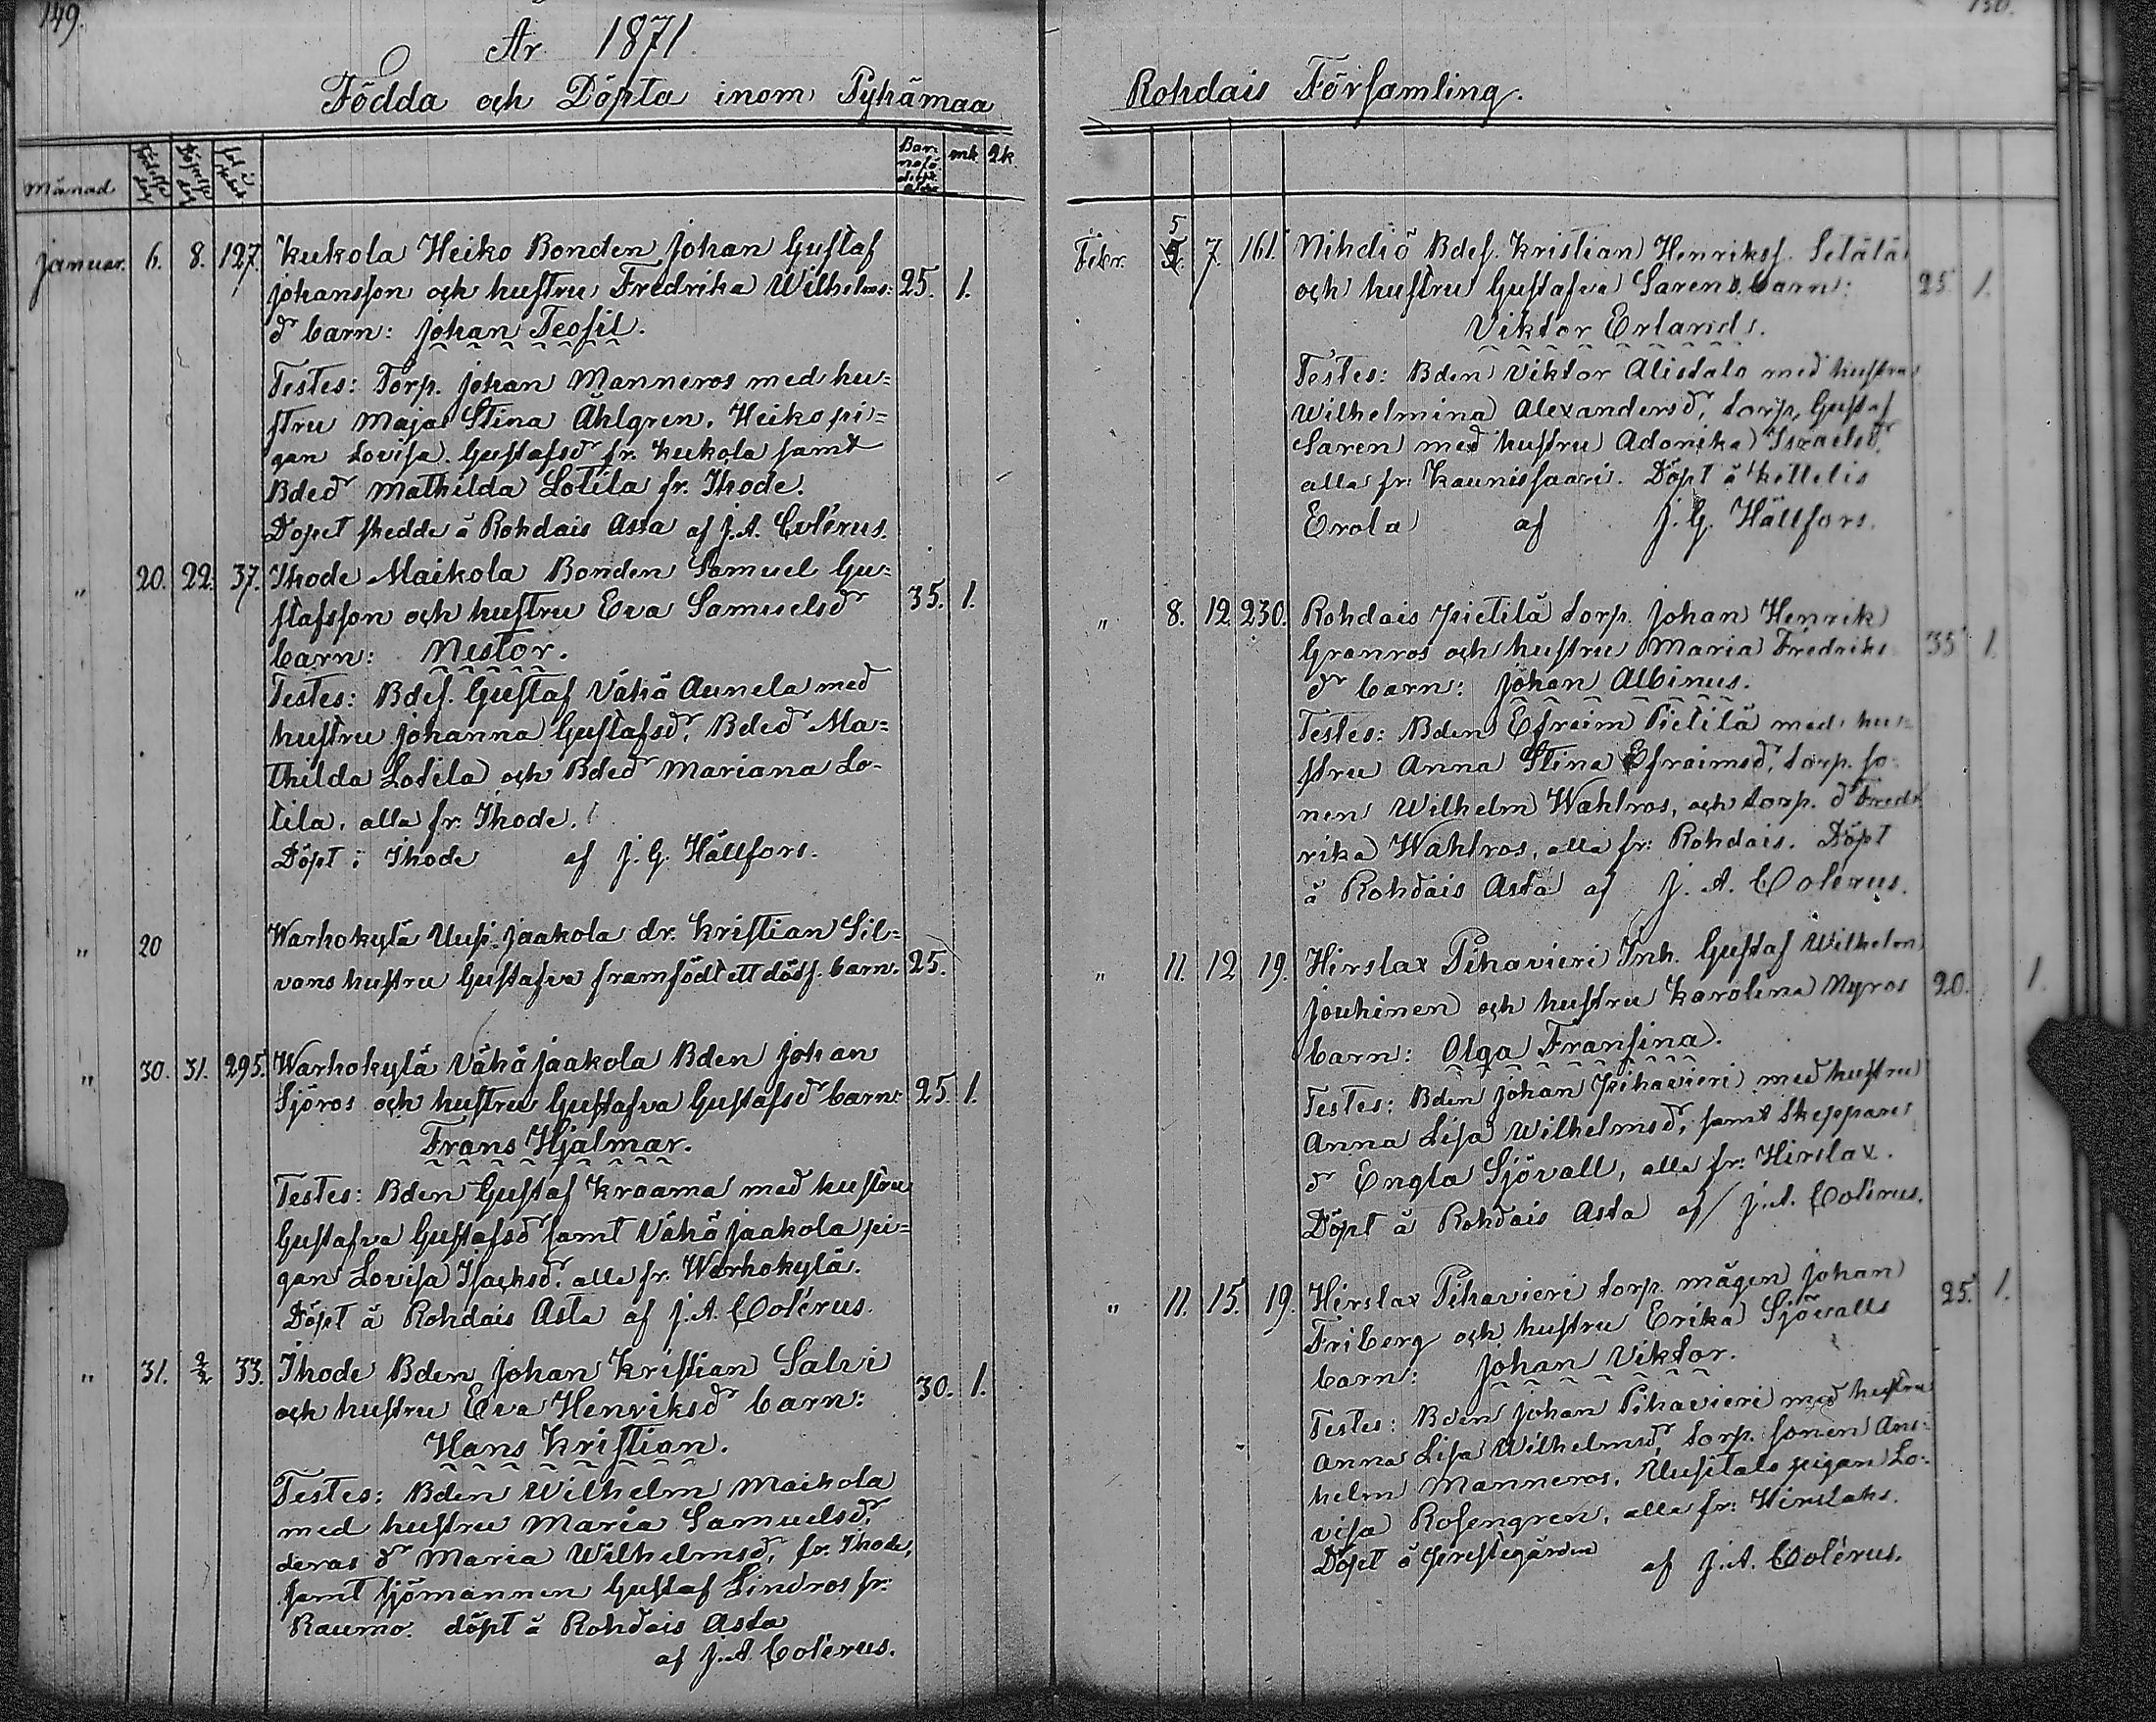 149.
År 1871.
Födda och Döpta inom Pyhämaa
Månad
Födelse dag
Döpelse dag
mk
qk
Januar. 6. 8. 127. Kukola Heiko Bonden Johan Gustaf
Johansson och hustru Fredrika Wilhelms: 25. 1.
dr barn: Johan Teofil.
Testes: Torp. Johan Manneros med hu=
stru Maja Stina Åhlgren, Heiko pi=
gan Lovisa Gustafsdr fr. Kukola samt
Bdedr Mathilda Lotila fr. Ihode.
Dopet skedde å Rohdais Asta af J. A. Colérus.
" 20. 22. 37. Ihode Maikola Bonden Samuel Gu=
stafsson och hustru Eva Samuelsdr 35. 1.
barn: Nestor.
Testes: Bdes. Gustaf Vähä Aunela med
hustru Johanna Gustafsdr, Bdedr Ma=
thilda Lotila och Bdedr Mariana Lo-
tila, alla fr. Ihode.
Döpt i Ihode af J. G. Hällfors.
" 20 Warhokylä Uusi Jaakola dr. Kristian Sil=
vans hustru Gustafva framfödt ett dödf. barn. 25.
" 30. 31. 295. Warhokylä Vähä Jaakola Bden Johan
Sjöros och hustru Gustafva Gustafsdr barn: 25. 1.
Frans Hjalmar.
Testes: Bden Gustaf Kraama med hustru
Gustafva Gustafsdr samt Vähä Jaakola pi=
gan Lovisa Isaksdr. alla fr. Warhokylä.
Döpt å Rohdais Asta af J. A. Colérus.
" 31. 2/2 33. Ihode Bden Johan Kristian Salvi
och hustru Eva Henriksdr barn: 30. 1.
Hans Kristian.
Testes: Bden Wilhelm Maikola
med hustru Maria Samuelsdr,
deras dr Maria Wilhelmsdr, fr. Ihode,
samt sjömannen Gustaf Lindros fr.
Raumo. döpt å Rohdais Asta
af J. A. Colérus.
130.
Rohdais Församling.
Febr. 5 7. 161. Nihdiö Bdes. Kristian Henrikss. Setälä
och hustru Gustafva Sarens barn: 25 1.
Viktor Erland.
Testes: Bden Viktor Alistalo med hustru
Wilhelmina Alexandersdr, torp. Gustaf
Saren med hustru Adorika Israelsdr,
alla fr: Kaunissaari. Döpt å Kettelis
Erola af J. G. Hällfors.
" 8. 12. 230. Rohdais Pietilä torp. Johan Henrik
Granros och hustru Maria Fredriks 35 1.
dr barn: Johan Albinus.
Testes: Bden Efraim Pietilä med hu=
stru Anna Stina Efraimsdr, torp. so=
nen Wilhelm Wahlros, och torp. dr Fred=
rika Wahlros, alla fr: Rohdais. Döpt
å Rohdais Asta af J. A. Colérus.
" 11. 12 19. Hirslax Pihavieri Inh. Gustaf Wilhelm
Jouhinen och hustru Karolina Nyros 20. 1.
barn: Olga Fransina.
Testes: Bden Johan Pihavieri med hustru
Anna Lisa Wilhelmsdr, samt Skeppare
dr Engla Sjövall, alla fr: Hirslax.
Döpt å Rohdais Asta af J. A. Colérus.
" 11. 15. 19. Hirslax Pihavieri torp. mågen Johan
Friberg och hustru Erika Sjövalls 25. 1.
barn: Johan Viktor.
Testes: Bden Johan Pihavieri med hustru
Anna Lisa Wilhelmsdr, torp. sonen Ans=
helm Manneros, Uusitalo pigan Lo=
visa Rosengren, alla fr: Hirslaks.
Döpt å Prestegården af J. A. Colérus.